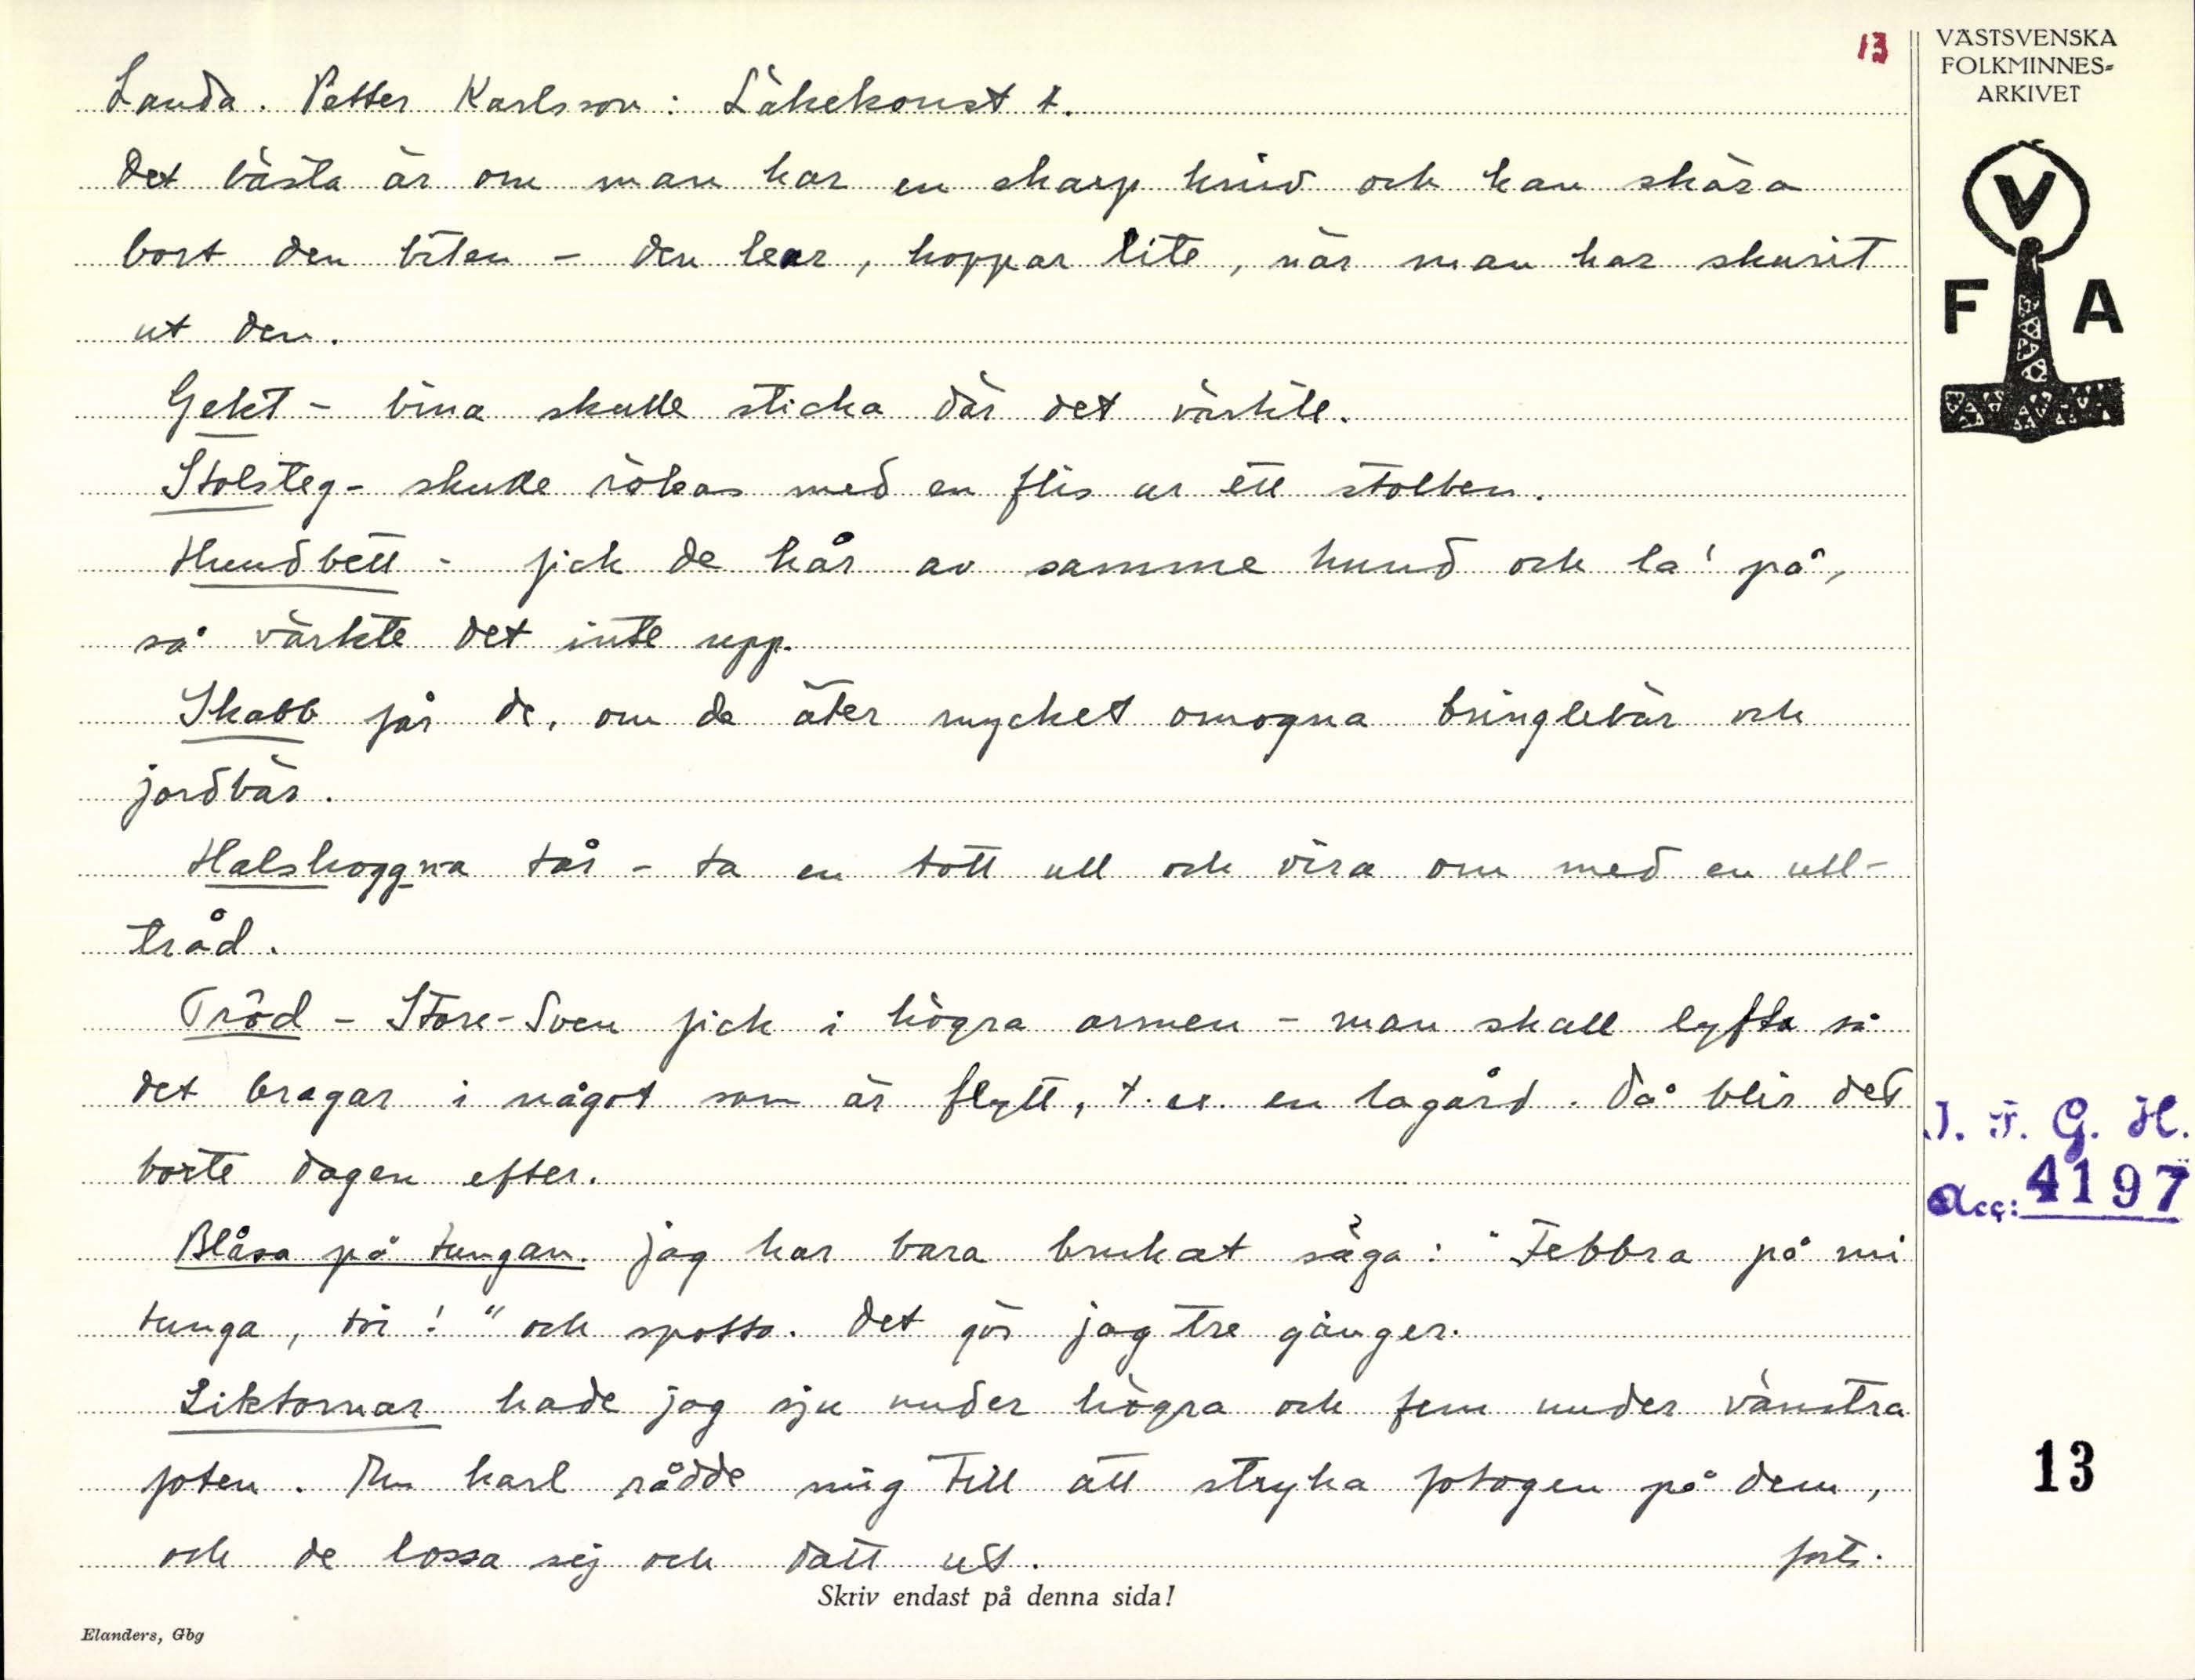 13
VÄSTSVENSKA
FOLKMINNES-
ARKIVET
V
F A
Landa. Petter Karlsson: Läkekonst
Det bästa är om man har en skarp kniv och kan skära
bort den biten - den lever, hoppar lite, när man har skurit
ut den.
Gekt - bina skulle sticka där det värkte.
Stolsteg - skulle rökas med en flis ur ett stolben.
Hundbett - fick de hår av samme hund och la' på,
så värkte det inte upp.
Skabb får de, om de äter mycket omogna bringlebär och
jordbär.
Halshoggna tår - ta en tott ull och vira om med en ull-
tråd.
Tröd - Store-Sven fick i högra armen - man skall lyfta så
det bragar i något som är flytt, t.ex. en lagård. Då blir det
borte dagen efter.
Blåsa på tungan. Jag har bara brukat säga: "Febbra på mi
tunga, tvi!" och spotta. Det gör jag tre gånger.
Liktornar hade jag sju under högra och fem under vänstra
foten. En karl rådde mig till att stryka fotogen på dem,
och de lossa sej och datt ut. forts.
I. F. G. H.
Acc: 4197
13
Skriv endast på denna sida!
Elanders, Gbg